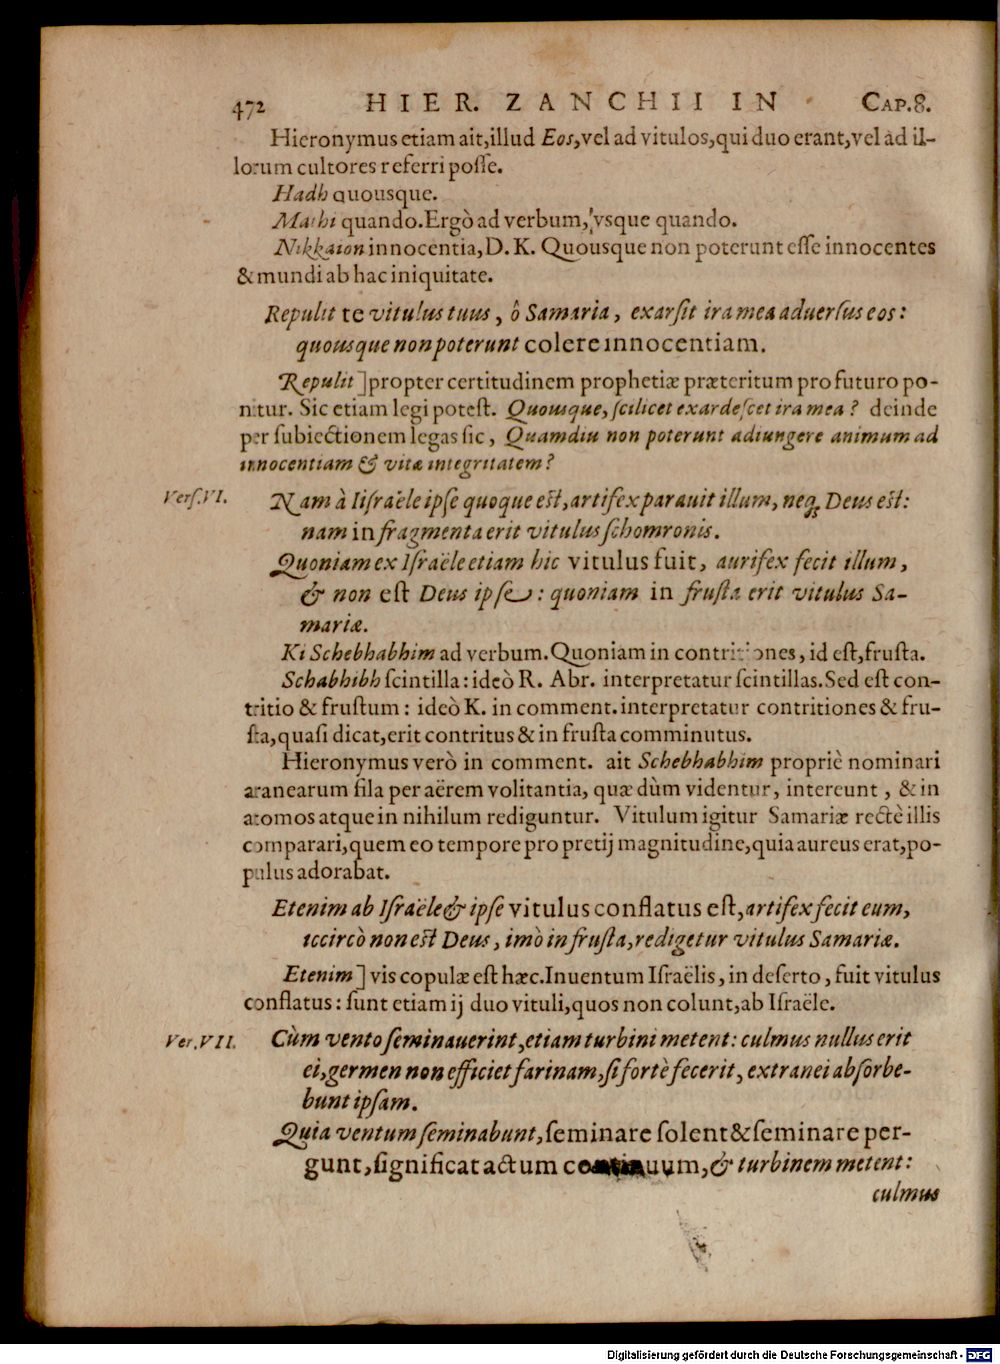 472 HIER. ZANCHII IN CAP.8.
Hieronymus etiam ait, illud Eos, vel ad vitulos, qui duo erant, vel ad il-
lorum cultores referri posse.
Hadh quousque.
Mathi quando. Ergò ad verbum, vsque quando.
Nikkaion innocentia, D. K. Quousque non poterunt esse innocentes
& mundi ab hac iniquitate.
Repulit te vitulus tuus, ô Samaria, exarsit ira mea aduersus eos:
quousque non poterunt colere innocentiam.
Repulit] propter certitudinem prophetiæ præteritum pro futuro po-
nitur. Sic etiam legi potest. Quousque, scilicet exardescet ira mea? deinde
per subiectionem legas sic, Quamdiu non poterunt adiungere animum ad
innocentiam & vitæ integritatem?
Vers.VI. Nam à Iisraële ipse quoque est, artifex parauit illum, neq; Deus est:
nam in fragmenta erit vitulus schomronis.
Quoniam ex Israële etiam hic vitulus fuit, aurifex fecit illum,
& non est Deus ipse: quoniam in frusta erit vitulus Sa-
mariæ.
Ki Schebhabhim ad verbum. Quoniam in contritiones, id est, frusta.
Schabhibh scintilla: ideò R. Abr. interpretatur scintillas. Sed est con-
tritio & frustum: ideò K. in comment. interpretatur contritiones & fru-
sta, quasi dicat, erit contritus & in frusta comminutus.
Hieronymus verò in comment. ait Schebhabhim propriè nominari
aranearum fila per aërem volitantia, quæ dùm videntur, intereunt, & in
atomos atque in nihilum rediguntur. Vitulum igitur Samariæ rectè illis
comparari, quem eo tempore pro pretij magnitudine, quia aureus erat, po-
pulus adorabat.
Etenim ab Israële & ipse vitulus conflatus est, artifex fecit eum,
iccircò non est Deus, imò in frusta, redigetur vitulus Samariæ.
Etenim] vis copulæ est hæc. Inuentum Israëlis, in deserto, fuit vitulus
conflatus: sunt etiam ij duo vituli, quos non colunt, ab Israële.
Ver.VII. Cùm vento seminauerint, etiam turbini metent: culmus nullus erit
ei, germen non efficiet farinam, si fortè fecerit, extranei absorbe-
bunt ipsam.
Quia ventum seminabunt, seminare solent & seminare per-
gunt, significat actum continuum, & turbinem metent:
culmus
Digitalisierung gefördert durch die Deutsche Forschungsgemeinschaft - DFG